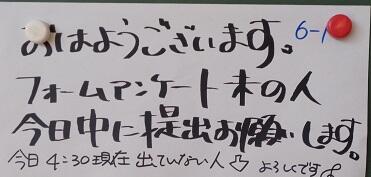 おはようございます。 6-1
フォームアンケート未の人
今日中に提出お願いします。
今日4:30現在 出ていない人⇩ よろしくです